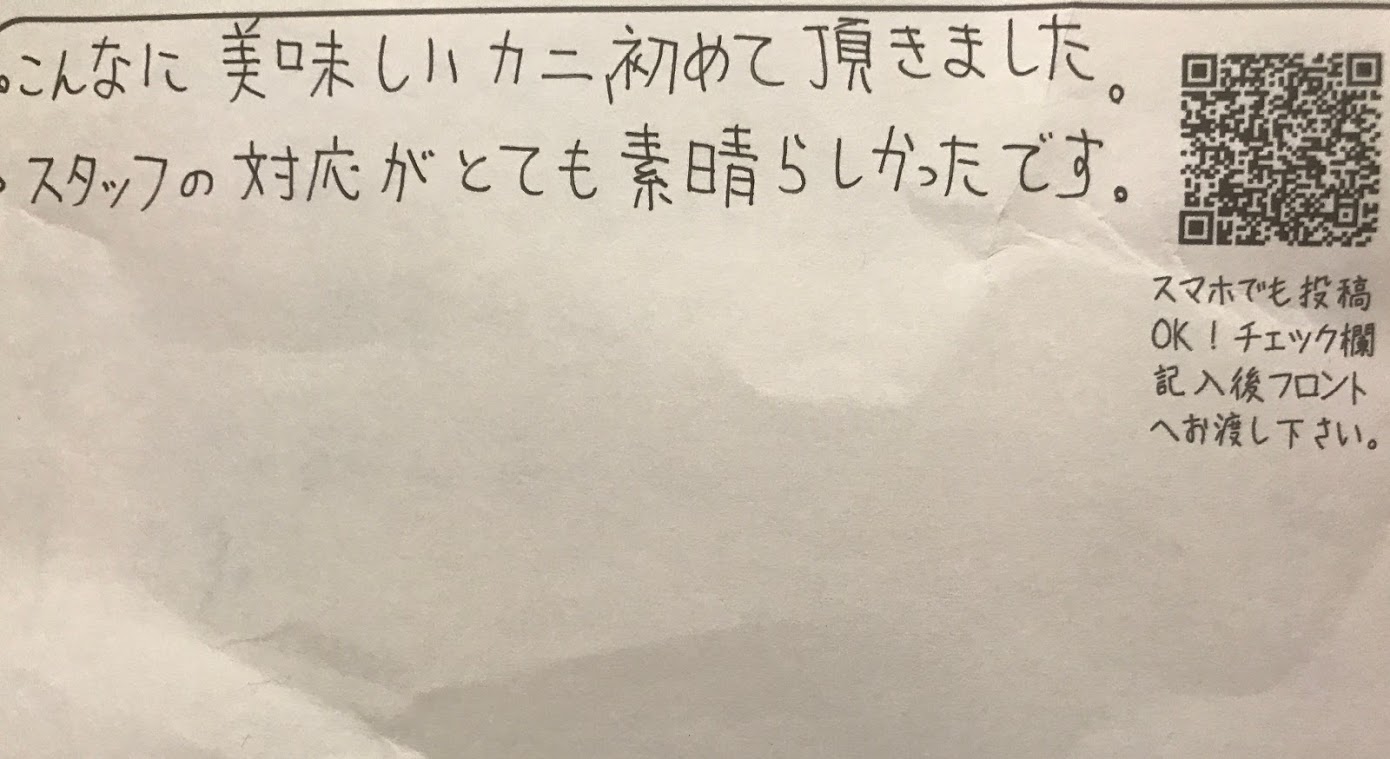 。こんなに美味しいカニ、初めて頂きました。
。スタッフの対応がとても素晴らしかったです。
スマホでも投稿
OK！チェック欄
記入後フロント
へお渡し下さい。